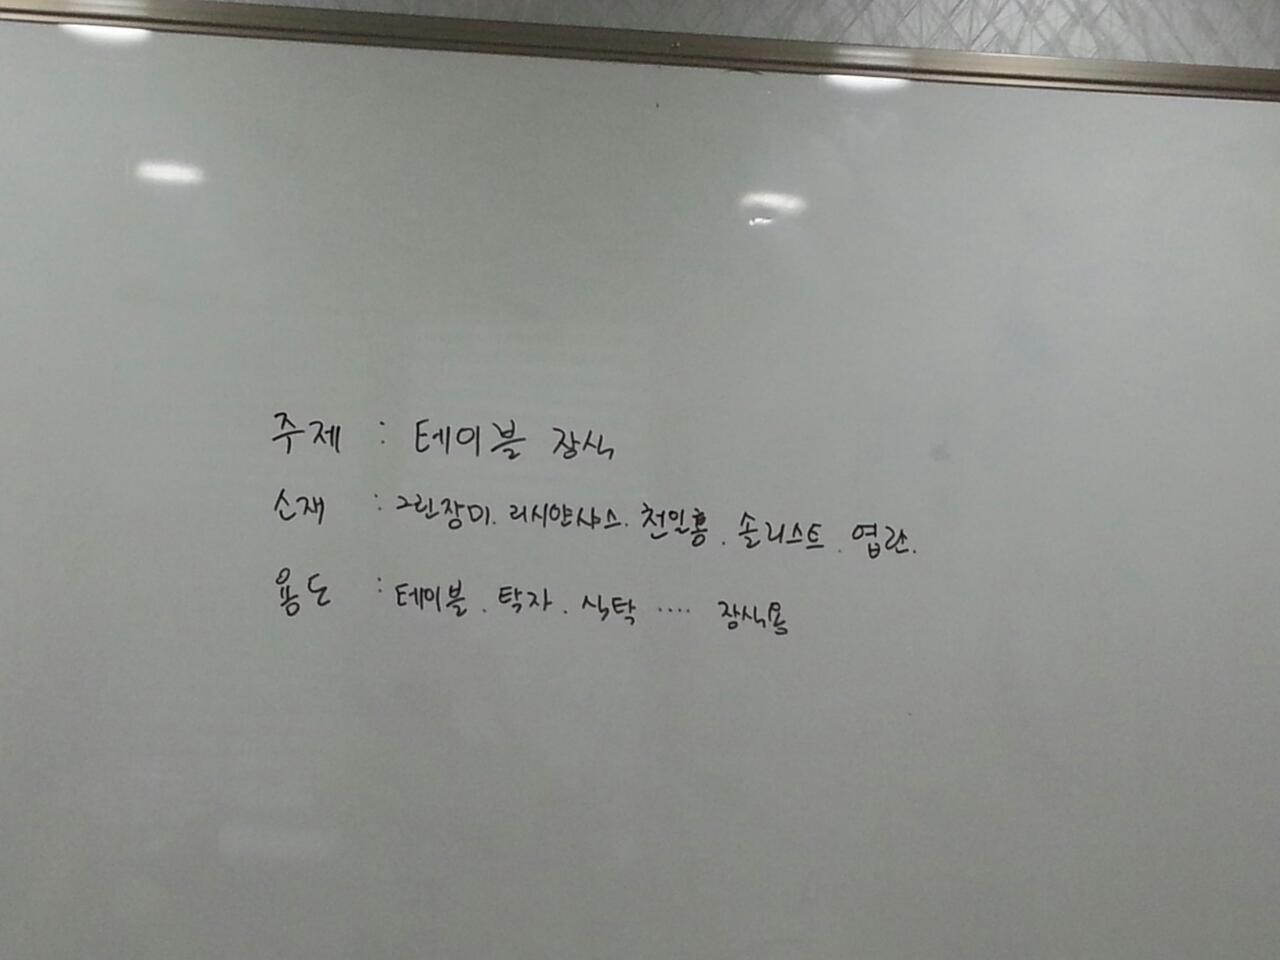 주제 : 테이블 장식
소재 : 그린장미. 리시얀샤스. 천일홍. 솔리스트. 엽란.
용도 : 테이블. 탁자. 식탁 .... 장식용